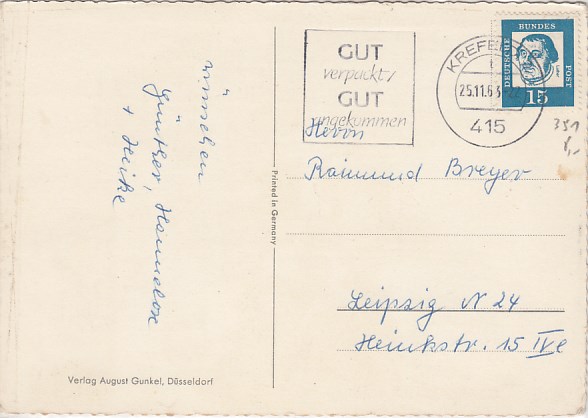 wünschen
Günther, Hannelore
+ Heike
Verlag August Gunkel, Düsseldorf
Printed in Germany
GUT
verpackt/
GUT
angekommen
KREFELD
25.11.63
415
DEUTSCHE
BUNDES
POST
15
351
Herrn
Raimund Breyer
Leipzig N 24
Heinkstr. 15 IVl